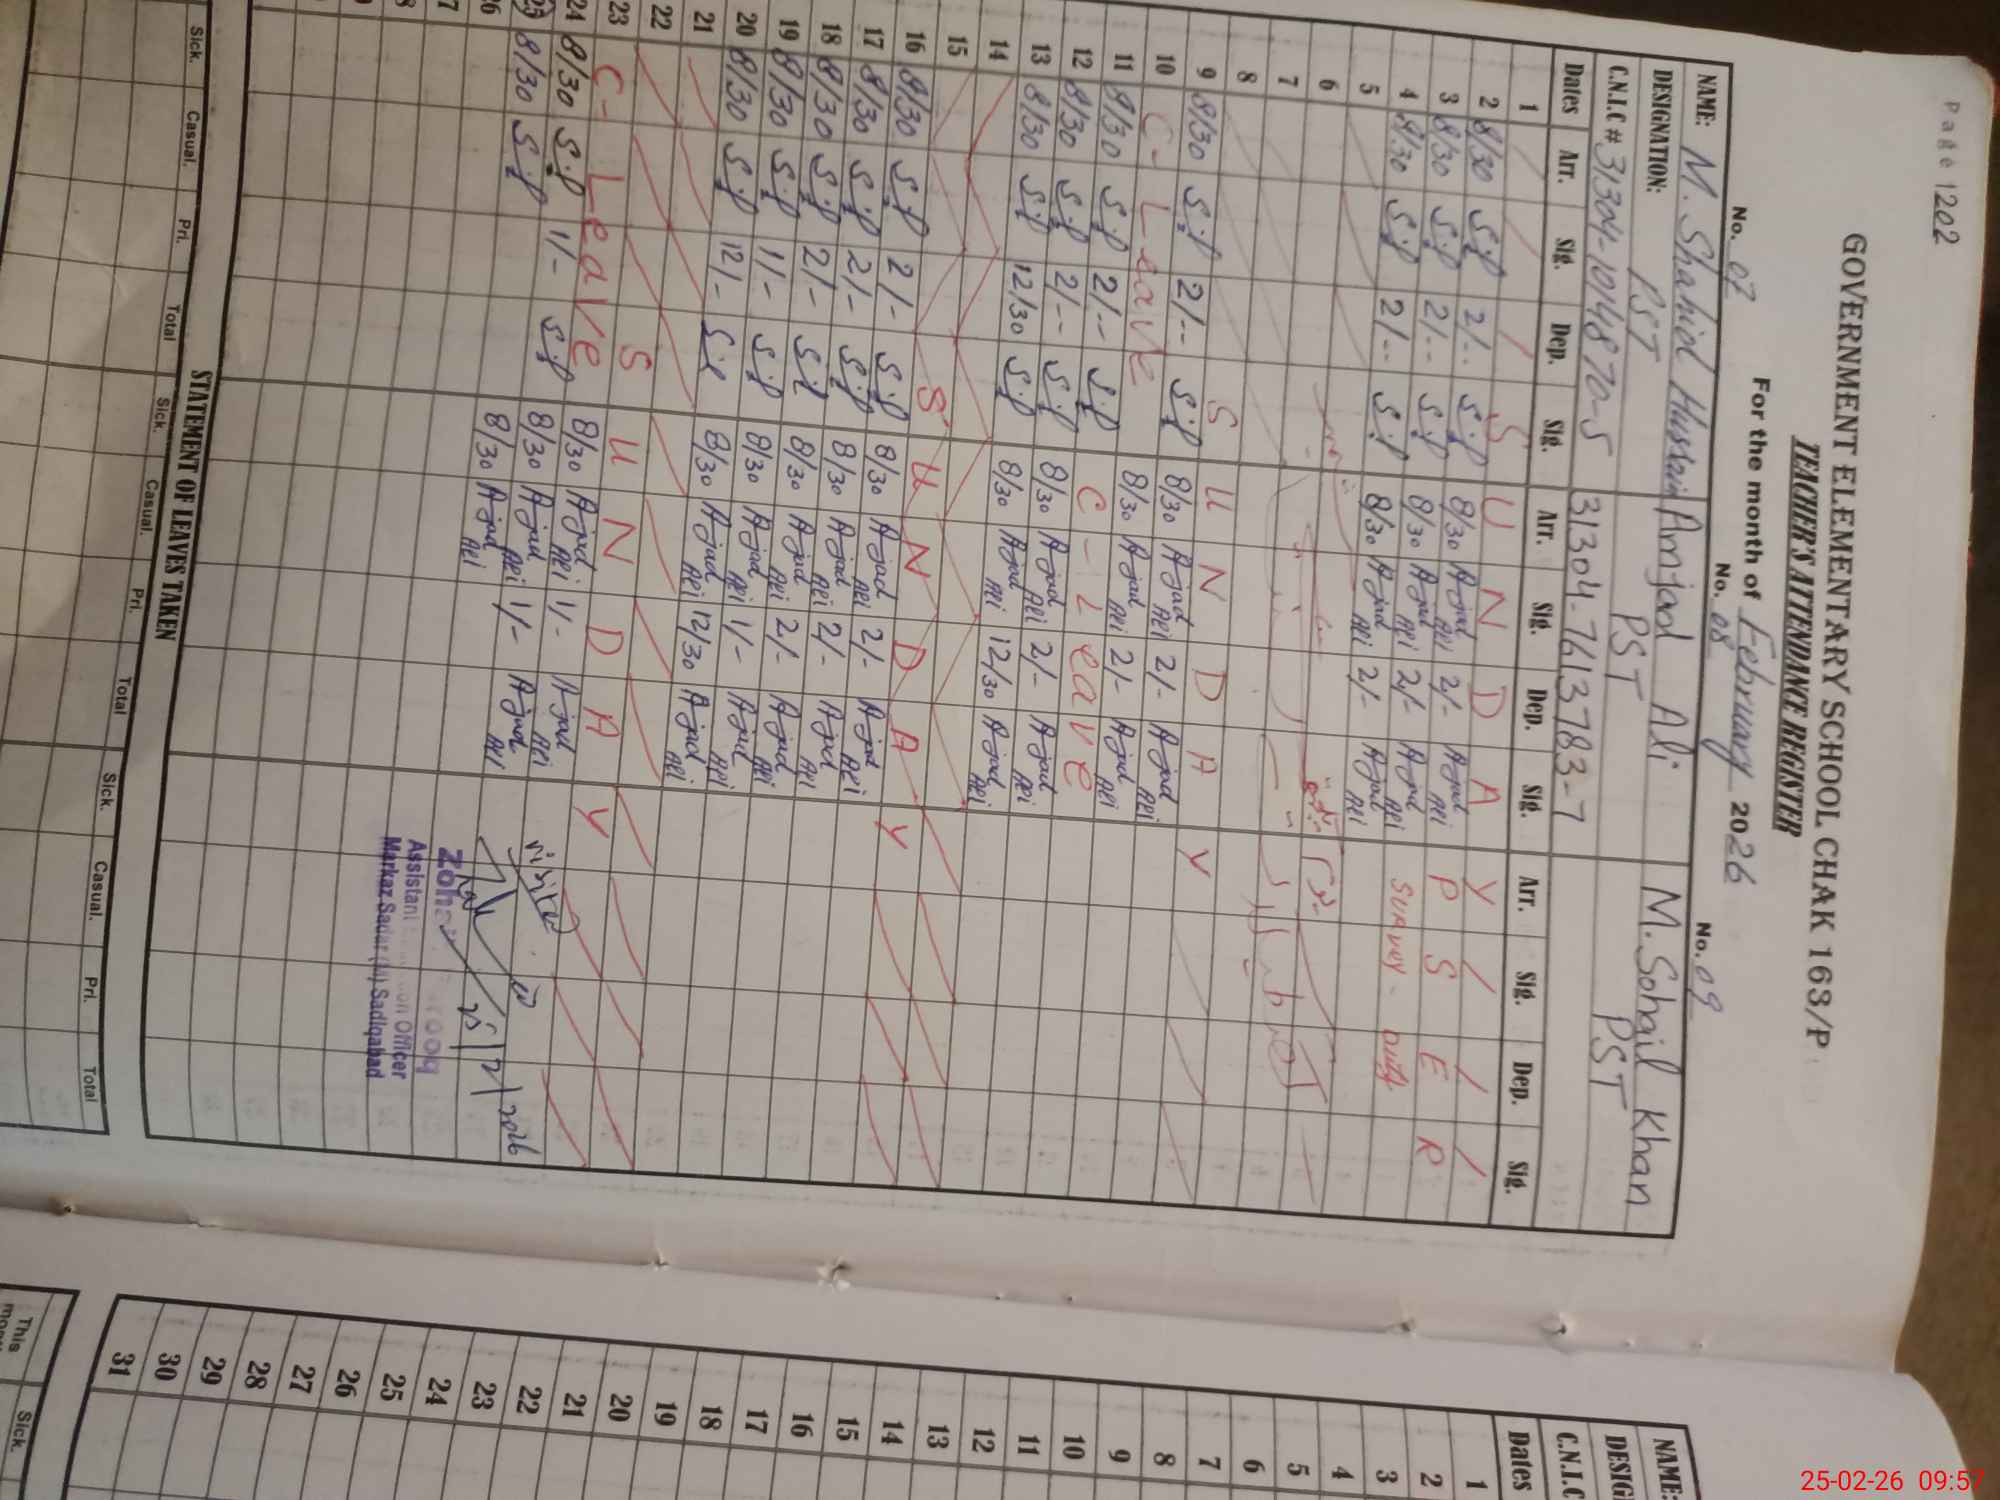 Page 1202
GOVERNMENT ELEMENTARY SCHOOL CHAK 163/P
TEACHER'S ATTENDANCE REGISTER
For the month of February 2026
No. 07 No. 08 No. 09
NAME: M. Shahid Hussain Amjad Ali M. Sohail Khan
DESIGNATION: PST PST PST
C.N.I.C # 31304-1014870-5 31304-7613783-7
Dates Arr. Sig. Dep. Sig. Arr. Sig. Dep. Sig. Arr. Sig. Dep. Sig.
1 S U N D A Y
2 8/30 S.P 2/-- S.P 8/30 Amjad Ali 2/- Amjad Ali P S E R
3 8/30 S.P 2/-- S.P 8/30 Amjad Ali 2/- Amjad Ali Survey - duty
4 8/30 S.P 2/-- S.P 8/30 Amjad Ali 2/- Amjad Ali
5
6
7
8 S U N D A Y
9 8/30 S.P 2/-- S.P 8/30 Amjad Ali 2/- Amjad Ali
10 C - Leave 8/30 Amjad Ali 2/- Amjad Ali
11 8/30 S.P 2/-- S.P C - Leave
12 8/30 S.P 2/-- S.P 8/30 Amjad Ali 2/- Amjad Ali
13 8/30 S.P 12/30 S.P 8/30 Amjad Ali 12/30 Amjad Ali
14
15 S U N D A Y
16 8/30 S.P 2/- S.P 8/30 Amjad Ali 2/- Amjad Ali
17 8/30 S.P 2/- S.P 8/30 Amjad Ali 2/- Amjad Ali
18 8/30 S.P 2/- S.P 8/30 Amjad Ali 2/- Amjad Ali
19 8/30 S.P 1/- S.P 8/30 Amjad Ali 1/- Amjad Ali
20 8/30 S.P 12/- S.P 8/30 Amjad Ali 12/30 Amjad Ali
21
22 S U N D A Y
23 C - Leave 8/30 Amjad Ali 1/- Amjad Ali
24 8/30 S.P 1/- S.P 8/30 Amjad Ali 1/- Amjad Ali
25 8/30 S.P 8/30 Amjad Ali
26
Visited
2026
Assistant Officer
Markaz Sadar (M) Sadiqabad
STATEMENT OF LEAVES TAKEN
Sick. Casual. Pri. Total Sick. Casual. Pri. Total Sick. Casual. Pri. Total
NAME:
DESIG
C.N.I.C
Dates
1
2
3
4
5
6
7
8
9
10
11
12
13
14
15
16
17
18
19
20
21
22
23
24
25
26
27
28
29
30
31
This
Sick.
25-02-26 09:57